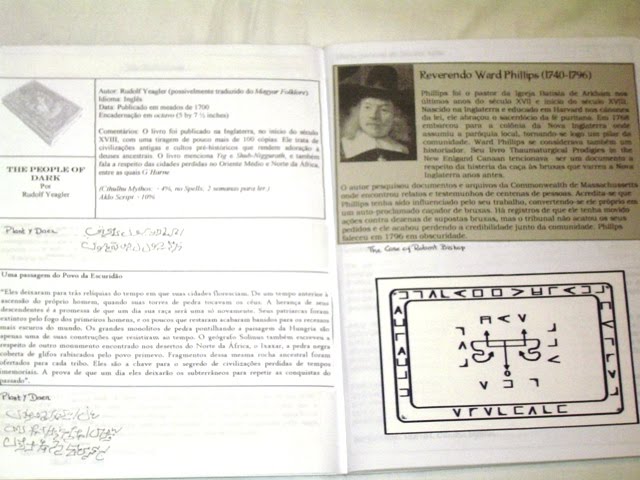 THE PEOPLE OF
DARK
Por
Rudolf Yeagler
Autor: Rudolf Yeagler (possivelmente traduzido do Magyar Folklore)
Idioma: Inglês
Data: Publicado em meados de 1700
Encadernação em octavo (5 by 7 ½ inches)
Comentários: O livro foi publicado na Inglaterra, no início do século
XVIII, com uma tiragem de pouco mais de 100 cópias. Ele trata de
civilizações antigas e cultos pré-históricos que rendem adoração à
deuses ancestrais. O livro menciona Yig e Shub-Niggurath, e também
fala a respeito das cidades perdidas no Oriente Médio e Norte da África,
entre as quais G'Harne
(Cthulhu Mythos: +4%, no Spells, 2 semanas para ler)
Aldo Script: +10%
Uma passagem do Povo da Escuridão
"Eles deixaram para trás relíquias do tempo em que suas cidades floresciam. De um tempo anterior à
ascensão do próprio homem, quando suas torres de pedra tocavam os céus. A herança de seus
descendentes é a promessa de que um dia sua raça será uma só novamente. Seus patriarcas foram
extintos pelo fogo dos primeiros homens, e os poucos que restaram acabaram banidos para os recessos
mais escuros do mundo. Os grandes monolitos de pedra pontilhando a paisagem da Hungria são
apenas uma de suas construções que resistiram ao tempo. O geógrafo Solinus também escreveu a
respeito de outro monumento encontrado nos desertos do Norte da África, o Ixaxar, a pedra negra
coberta de glifos rabiscados pelo povo primevo. Fragmentos dessa mesma rocha ancestral foram
ofertados para cada tribo. Eles são a chave para o segredo de civilizações perdidas de tempos
imemoriais. A prova de que um dia eles deixarão os subterrâneos para repetir as conquistas do
passado".
Reverendo Ward Phillips (1740-1796)
Phillips foi o pastor da Igreja Batista de Arkham nos
últimos anos do século XVII e início do século XVIII.
Nascido na Inglaterra e educado em Harvard nos cânones
da lei, ele abraçou o sacerdócio da fé puritana. Em 1768
embarcou para a colônia da Nova Inglaterra onde
assumiu a paróquia local, tornando-se logo um pilar da
comunidade. Ward Phillips se considerava também um
historiador. Seu livro Thaumaturgical Prodigies in the
New England Canaan tencionava ser um documento a
respeito da história da caça às bruxas que varreu a Nova
Inglaterra anos antes.
O autor pesquisou documentos e arquivos da Commonwealth de Massachussetts
onde encontrou relatos e testemunhos de centenas de pessoas. Acredita-se que
Phillips tenha sido influenciado pelo seu trabalho, convertendo-se ele próprio em
um auto-proclamado caçador de bruxas. Há registros de que ele tenha movido
ações contra dezenas de supostas bruxas, mas o tribunal não acatou os seus
pedidos e ele acabou perdendo a credibilidade junto da comunidade. Philips
faleceu em 1796 em obscuridade.
The Case of Robert Bishop